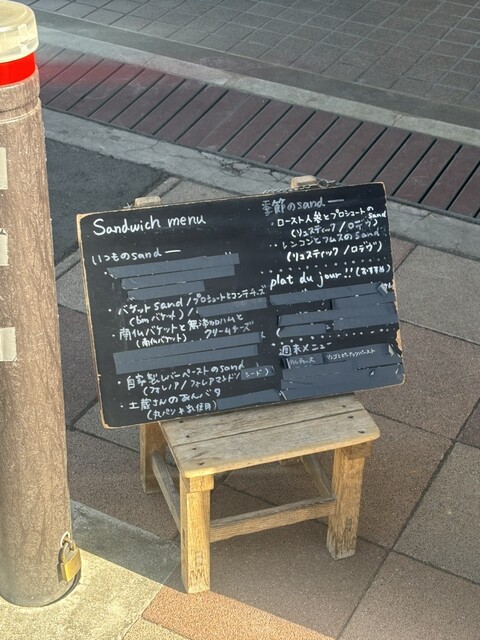 Sandwich menu
いつものsand
・バゲットsand/プロシュートとコンテチーズ
(bioバゲット)/
南仏バゲットと無添加ハムと
(南仏バゲット) クリームチーズ
・自家製レバーペーストのsand
(フォレノア/フォレアマンド/シード)
・土蔵さんのあんバタ
季節のsand
・ロースト人参とプロシュートのsand
(リュスティック/ロデヴ)
・レンコンとフムスのsand
(リュスティック/ロデヴ)
plat du jour!!
週末メニュー